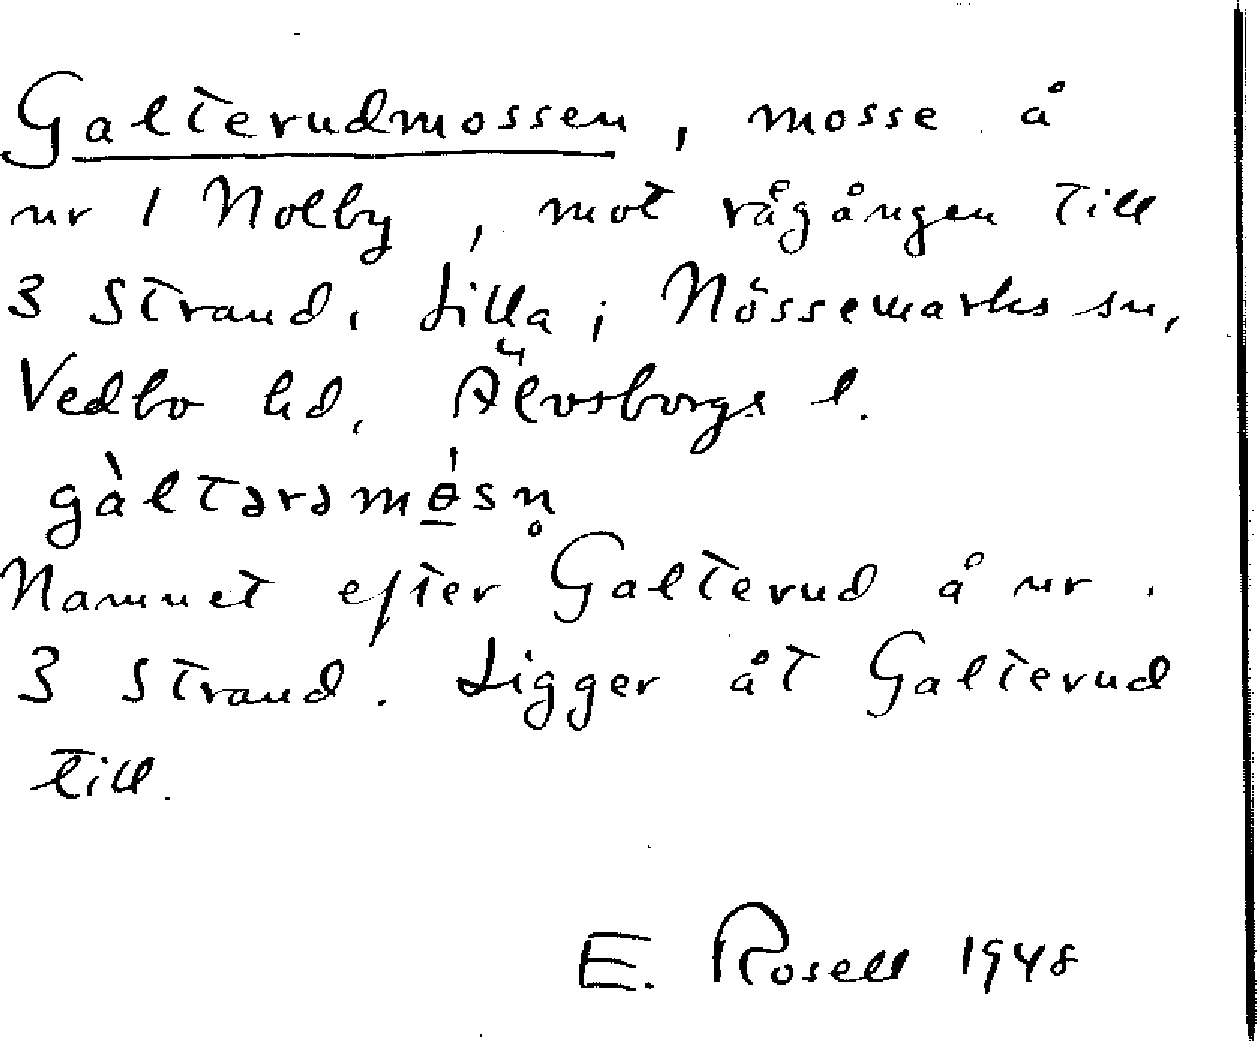 Galterudmossen, mosse å
nr 1 Nolby, mot rågången till
3 Strand, Lilla; Nössemarks sn,
Vedbo hd, Älvsborgs l.
gàltərəmɵ́sn̥
Namnet efter Galterud å nr
3 Strand. Ligger åt Galterud
till.
E. Rosell 1948